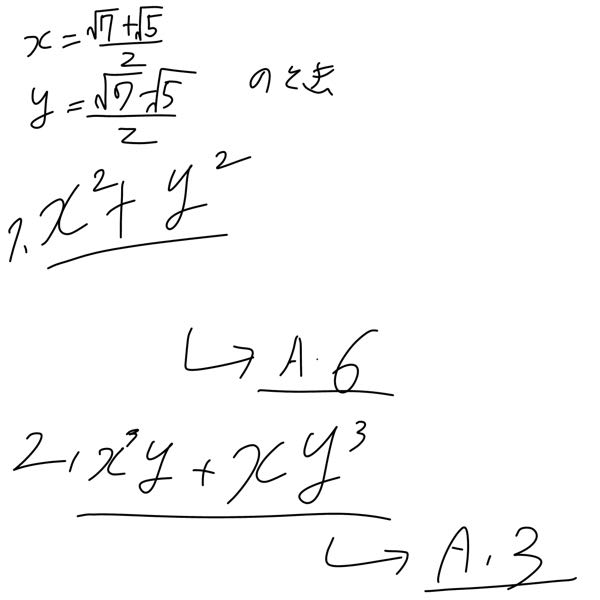 x = (√7+√5)/2
y = (√7-√5)/2 のとき
1. x²+y²
↳ A.6
2. x³y+xy³
↳ A.3